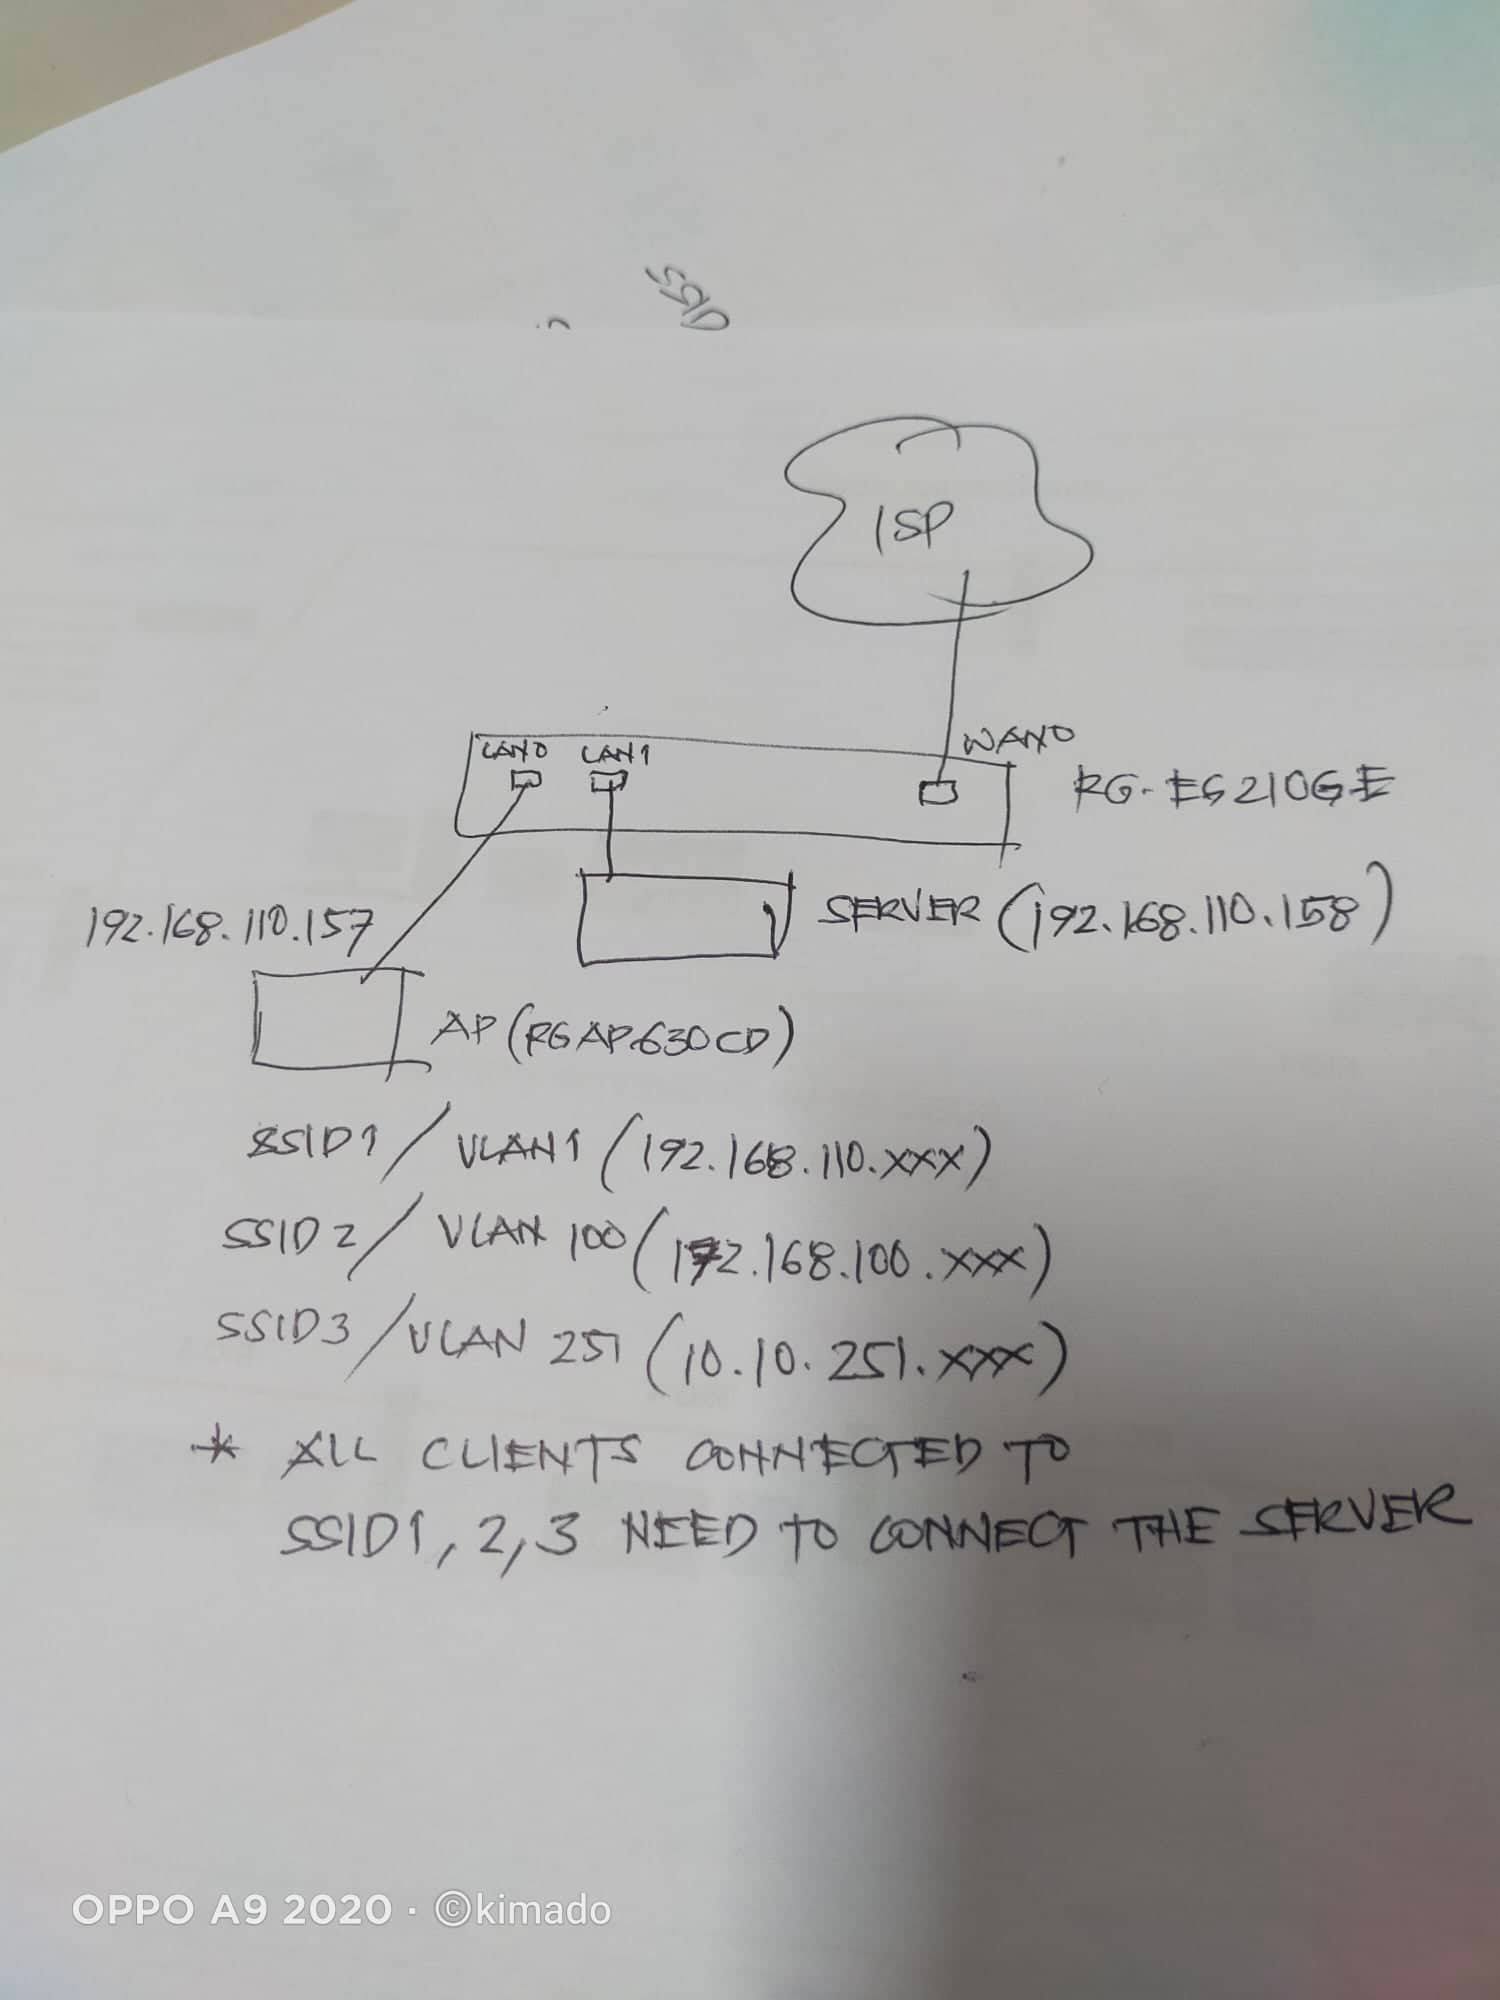 ISP
LAN0 LAN1 WAN0
RG-EG210G-E
192.168.110.157
SERVER (192.168.110.158)
AP (RGAP630CD)
SSID1 / VLAN1 (192.168.110.xxx)
SSID2 / VLAN 100 (192.168.100.xxx)
SSID3 / VLAN 251 (10.10.251.xxx)
* ALL CLIENTS CONNECTED TO
SSID1, 2, 3 NEED TO CONNECT THE SERVER
OPPO A9 2020 · ©kimado